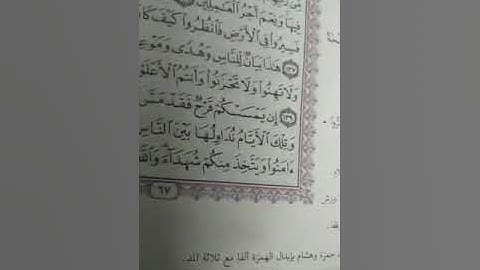 فِيهَا وَنِعْمَ أَجْرُ ٱلْعَٰمِلِينَ
فَسِيرُوا۟ فِى ٱلْأَرْضِ فَٱنظُرُوا۟ كَيْفَ كَا
١٣٧ هَٰذَا بَيَانٌ لِّلنَّاسِ وَهُدًى وَمَوْعِ
وَلَا تَهِنُوا۟ وَلَا تَحْزَنُوا۟ وَأَنتُمُ ٱلْأَعْلَوْ
١٣٩ إِن يَمْسَسْكُمْ قَرْحٌ فَقَدْ مَسَّ
وَتِلْكَ ٱلْأَيَّامُ نُدَاوِلُهَا بَيْنَ ٱلنَّاسِ
ءَامَنُوا۟ وَيَتَّخِذَ مِنكُمْ شُهَدَآءَ وَٱللَّ
٦٧
ورش
حمزة وهشام بإبدال الهمزة ألفا مع ثلاثة المد.